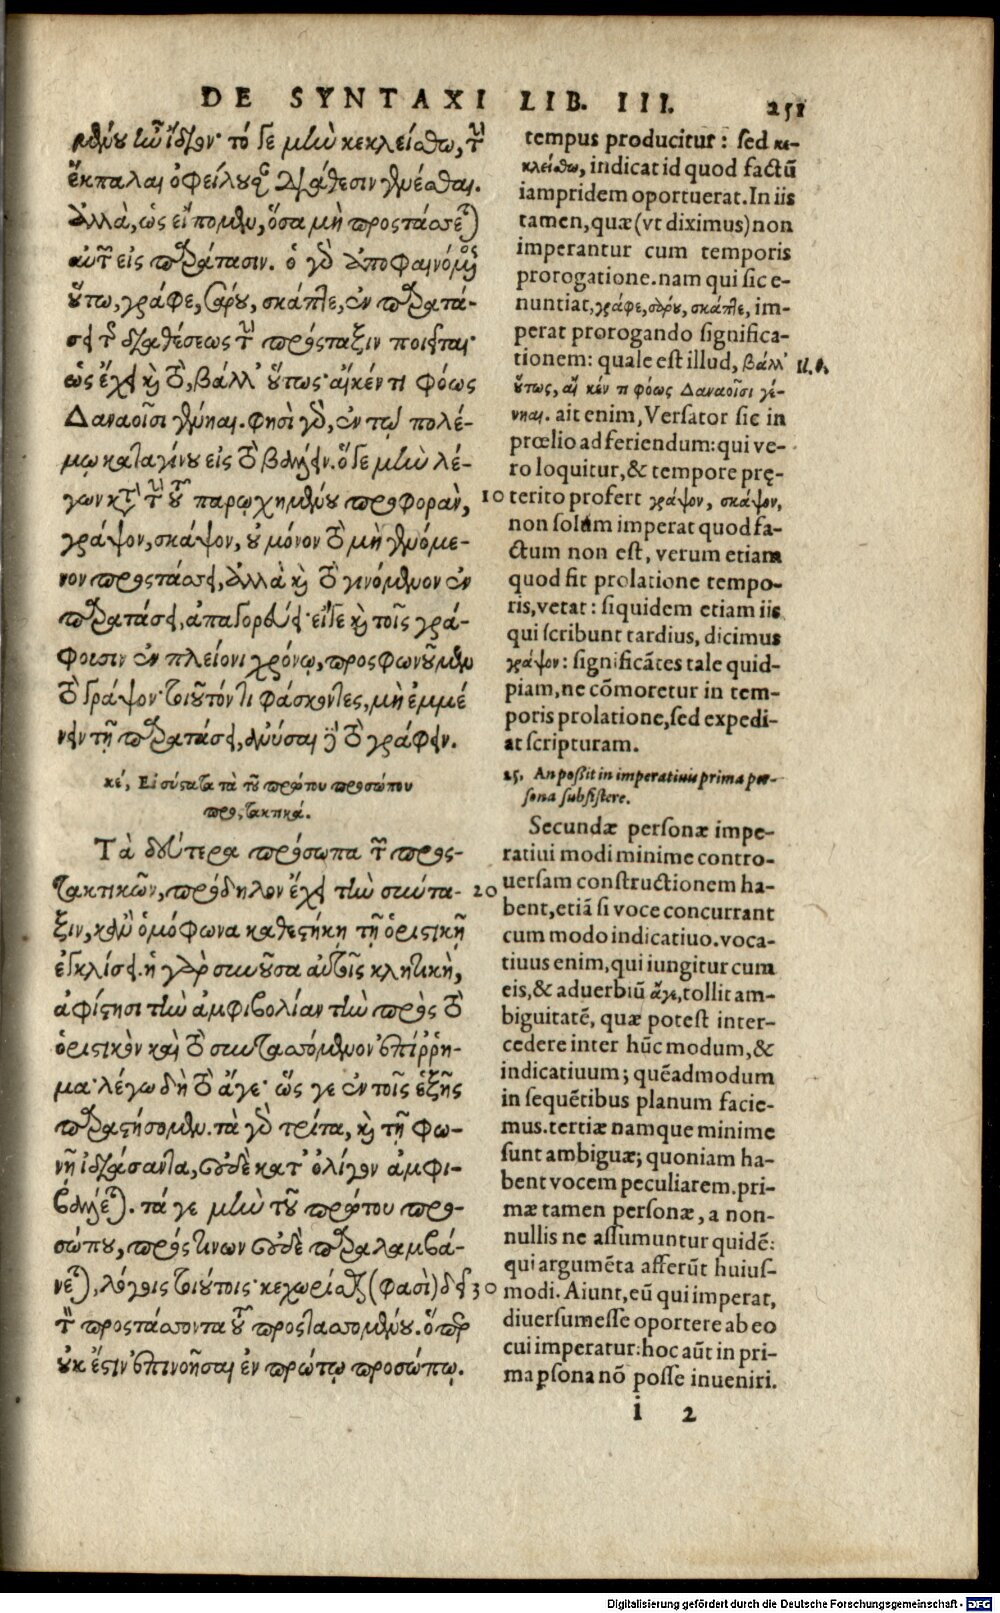 DE SYNTAXI LIB. III. 251
μένου ἦν ἴδιον· τό γε μὴν κεκλείσθω, τὴν
ἔκπαλαι ὀφείλουσαν διάθεσιν γενέσθαι.
ἀλλὰ, ὡς εἴπομεν, ὅσα μὴ προστάσσεται
αὐτῶν εἰς παράτασιν. ὁ γὸ ἀποφαινόμενος
οὕτω, γράφε, σάρου, σκάπτε, ἐν παρατά-
σει τῆς διαθέσεως τὴν πρόσταξιν ποιεῖται·
ὡς ἔχει καὶ τὸ, βάλλ' οὕτως· αἴ κέν τι φόως
Δαναοῖσι γένηαι. φησὶ γὰρ, ἐν τῷ πολέ-
μῳ καταγίνου εἰς τὸ βάλλειν. ὅ γε μὴν λέ-
γων κατὰ τὴν τοῦ παρῳχημένου προφορὰν, 10
γράψον, σκάψον, οὐ μόνον τὸ μὴ γενόμε-
νον προστάσσει, ἀλλὰ καὶ τὸ γινόμενον ἐν
παρατάσει, ἀπαγορεύει· εἴγε καὶ τοῖς γρά-
φουσιν ἐν πλείονι χρόνῳ, προσφωνοῦμεν
τὸ γράψον· τοιοῦτόν τι φάσκοντες, μὴ ἐμμέ
νειν τῇ παρατάσει, ἀνύσαι δὲ τὸ γράφειν.
κέ, Εἰ σύστατα τὰ τοῦ πρώτου προσώπου
προστακτικά.
Τὰ δεύτερα πρόσωπα τῶν προσ-
τακτικῶν, πρόδηλον ἔχει τὴν σύντα- 20
ξιν, κἂν ὁμόφωνα καθεστήκῃ τῇ ὁριστικῇ
ἐγκλίσει. ἡ γὰρ συνοῦσα αὐτοῖς κλητικὴ,
ἀφίστησι τὴν ἀμφιβολίαν τὴν πρὸς τὸ
ὁριστικὸν καὶ τὸ συντασσόμενον ἐπίῤῥη-
μα· λέγω δὴ τὸ ἄγε· ὥς γε ἐν τοῖς ἑξῆς
παραστήσομεν. τὰ γὰρ τρίτα, καὶ τῇ φω-
νῇ ἰδιάσαντα, οὐδὲ κατ' ὀλίγον ἀμφι-
βάλλεται. τά γε μὴν τοῦ πρώτου προ-
σώπου, πρός τινων οὐδὲ παραλαμβά-
νεται, λόγοις τοιούτοις· κεχωρίσθαι (φασὶ) δεῖ 30
τὸν προστάσσοντα τοῦ προστασσομένου. ὅπερ
οὐκ ἔστιν ἐπινοῆσαι ἐν πρώτῳ προσώπῳ.
tempus producitur: sed κε-
κλείσθω, indicat id quod factũ
iampridem oportuerat. In iis
tamen, quæ (vt diximus) non
imperantur cum temporis
prorogatione. nam qui sic e-
nuntiat, γράφε, σάρου, σκάπτε, im-
perat prorogando significa-
tionem: quale est illud, βάλλ' Il. θ.
οὕτως, αἴ κέν τι φόως Δαναοῖσι γέ-
νηαι. ait enim, Versator sic in
prœlio ad feriendum: qui ve-
ro loquitur, & tempore prę-
terito profert γράψον, σκάψον,
non solùm imperat quod fa-
ctum non est, verum etiam
quod fit prolatione tempo-
ris, vetat: siquidem etiam iis
qui scribunt tardius, dicimus
γράψον: significãtes tale quid-
piam, ne cõmoretur in tem-
poris prolatione, sed expedi-
at scripturam.
25. An possit in imperatiuis prima per-
sona subsistere.
Secundæ personæ impe-
ratiui modi minime contro-
uersam constructionem ha-
bent, etiã si voce concurrant
cum modo indicatiuo. voca-
tiuus enim, qui iungitur cum
eis, & aduerbiũ ἄγε, tollit am-
biguitatẽ, quæ potest inter-
cedere inter hũc modum, &
indicatiuum; quẽadmodum
in sequẽtibus planum facie-
mus. tertiæ namque minime
sunt ambiguæ; quoniam ha-
bent vocem peculiarem. pri-
mæ tamen personæ, a non-
nullis ne assumuntur quidẽ:
qui argumẽta afferũt huius-
modi. Aiunt, eũ qui imperat,
diuersum esse oportere ab eo
cui imperatur: hoc aũt in pri-
ma ꝑsona nõ posse inueniri.
i 2
Digitalisierung gefördert durch die Deutsche Forschungsgemeinschaft - DFG